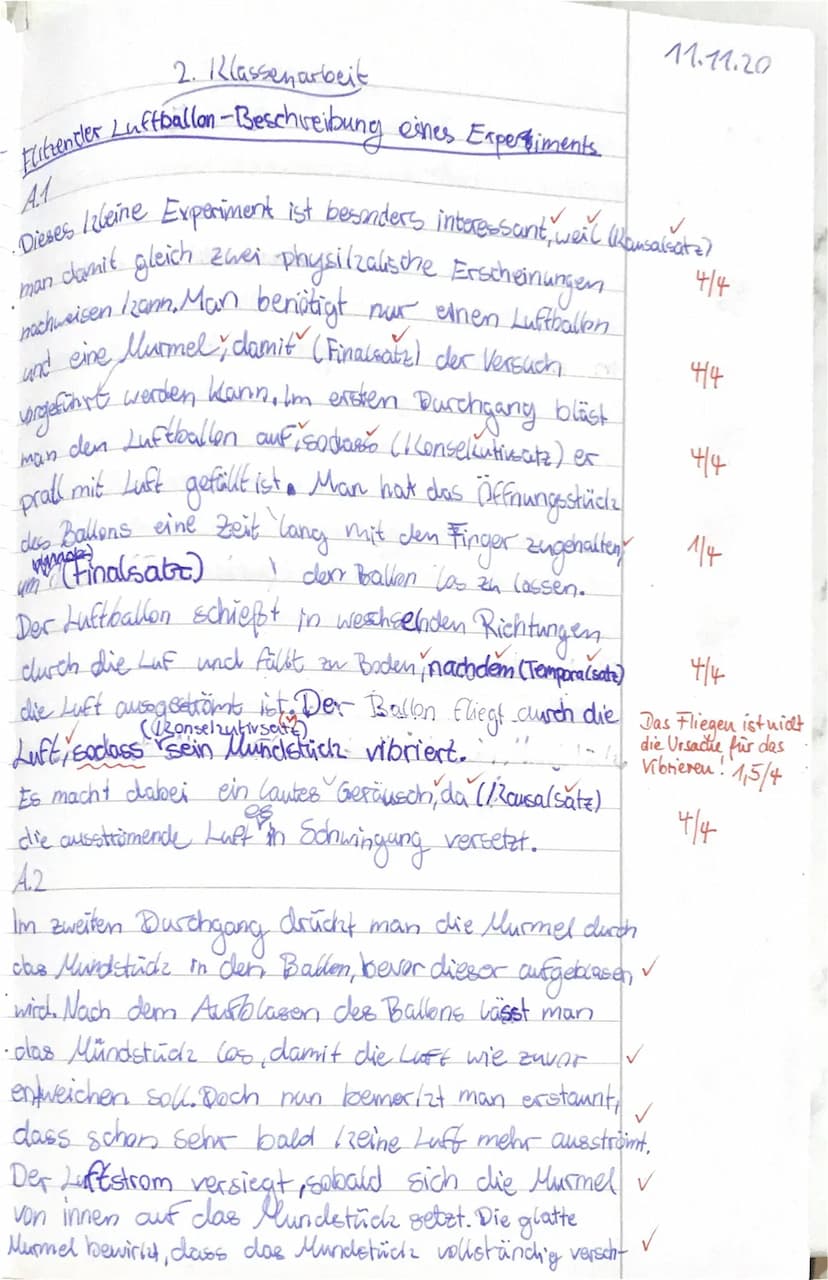 11.11.20
2. Klassenarbeit
Flitzender Luftballon-Beschreibung eines Experiments
A.1
Dieses kleine Experiment ist besonders interessant, weil (Kausalsatz)
man damit gleich zwei physikalische Erscheinungen
4/4
nachweisen kann. Man benötigt nur einen Luftballon
und eine Murmel, damit (Finalsatz) der Versuch
4/4
vorgeführt werden kann. Im ersten Durchgang bläst
man den Luftballon auf, sodass (Konsekutivsatz) er
4/4
prall mit Luft gefüllt ist. Man hat das Öffnungsstück
des Ballons eine Zeit lang mit den Finger zugehalten,
1/4
um (Finalsatz) den Ballon los zu lassen.
Der Luftballon schießt in wechselnden Richtungen
durch die Luf und fällt zu Boden, nachdem (Temporalsatz)
4/4
die Luft ausgeströmt ist. Der Ballon fliegt durch die
(Konsekutivsatz)
Luft, sodass sein Mundstück vibriert.
Das Fliegen ist nicht
die Ursache für das
Vibrieren! 1,5/4
Es macht dabei ein lautes Geräusch, da (Kausalsatz)
es
die ausströmende Luft in Schwingung versetzt.
4/4
A.2
Im zweiten Durchgang drückt man die Murmel durch
das Mundstück in den Ballon, bevor dieser aufgeblasen
wird. Nach dem Aufblasen des Ballons lässt man
das Mündstück los, damit die Luft wie zuvor
entweichen soll. Doch nun bemerkt man erstaunt,
dass schon sehr bald keine Luft mehr ausströmt.
Der Luftstrom versiegt, sobald sich die Murmel
von innen auf das Mundstück setzt. Die glatte
Murmel bewirkt, dass das Mundstück vollständig versch-